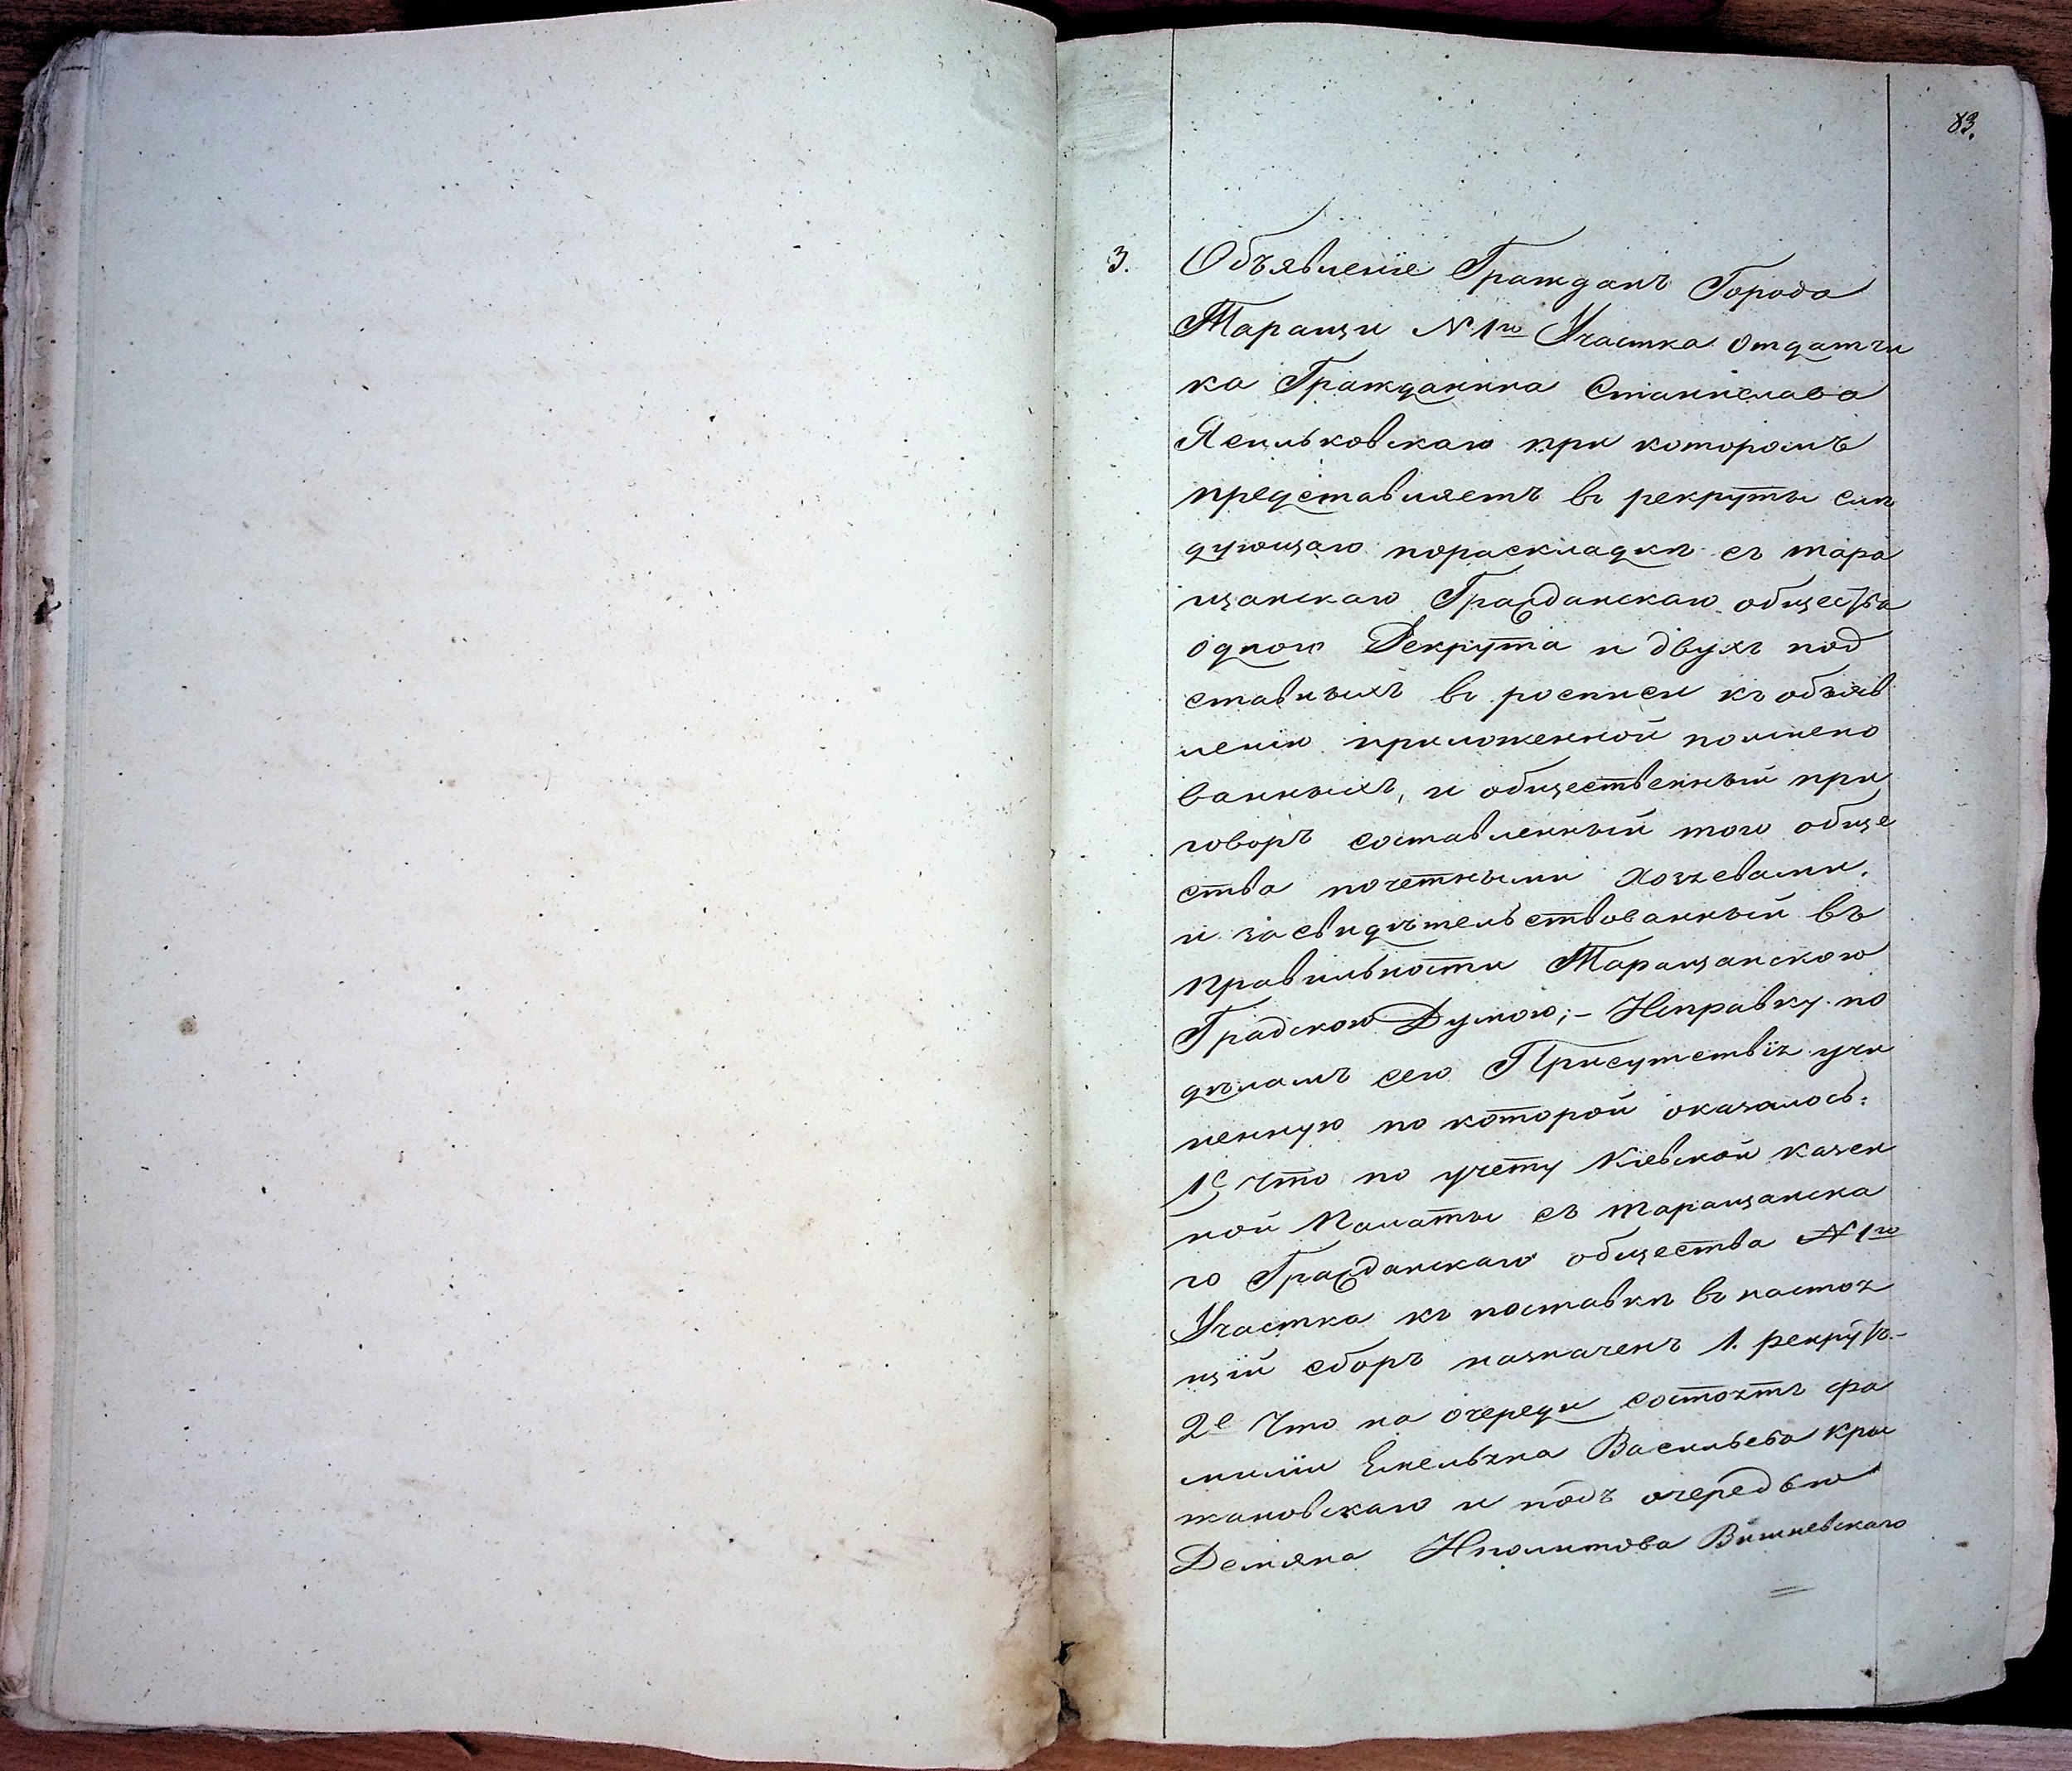 83.
3. Объявленіе Гражданъ Города
Таращи № 1го Участка отдатчи
ка Гражданина Станислава
Ясильковскаго при которомъ
представляетъ въ рекруты слѣ
дующаго пораскладкѣ съ тара
щанскаго Гражданскаго общества
одного Рекрута и двухъ под
ставныхъ въ росписи къ объяв
ленію приложенной поимено
ванныхъ, и общественный при
говоръ составленный того обще
ства почетными хозяевами,
и засвидѣтельствованный въ
правильности Таращанскою
Градскою Думою; - Исправку по
дѣламъ сего Присутствія учи
ненную по которой оказалось:
1е Что по учету Кіевской казен
ной Палаты съ таращанска
го Гражданскаго общества № 1го
Участка къ поставкѣ въ настоя
щій сборъ назначенъ 1. рекрутъ.-
2е Что на очереди состоятъ фа
миліи Емельяна Васильева Кры
жановскаго и подъ очередью
Демяна Иполитова Вишневскаго